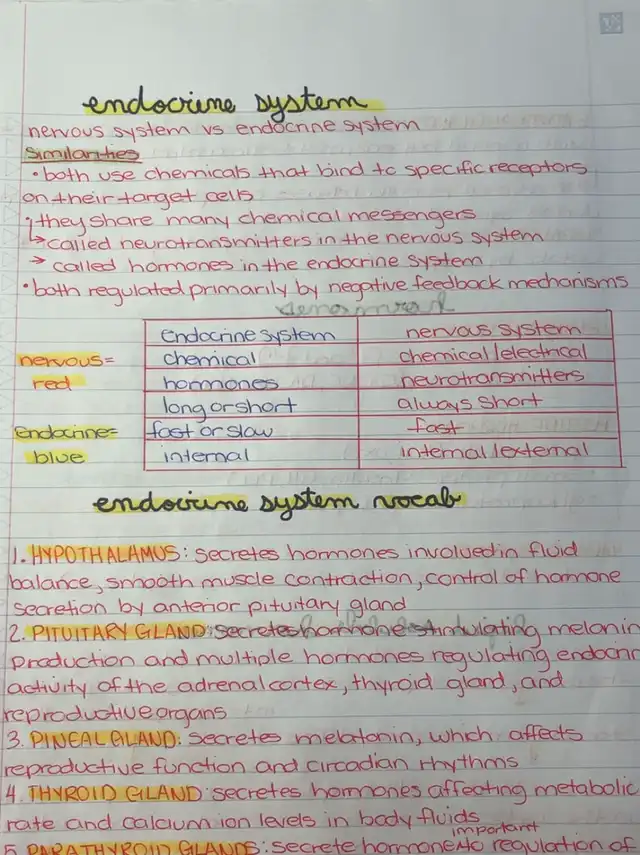 endocrine system
nervous system vs endocrine system
similarities
• both use chemicals that bind to specific receptors
on their target cells
they share many chemical messengers
→ called neurotransmitters in the nervous system
→ called hormones in the endocrine system
• both regulated primarily by negative feedback mechanisms
endocrine system nervous system
nervous= chemical chemical/electrical
red hormones neurotransmitters
long or short always short
endocrine= fast or slow fast
blue internal internal/external
endocrine system vocab
1. HYPOTHALAMUS: secretes hormones involved in fluid
balance, smooth muscle contraction, control of hormone
secretion by anterior pituitary gland
2. PITUITARY GLAND: secretes hormone stimulating melanin
production and multiple hormones regulating endocrin
activity of the adrenal cortex, thyroid gland, and
reproductive organs
3. PINEAL GLAND: secretes melatonin, which affects
reproductive function and circadian rhythms
4. THYROID GLAND: secretes hormones affecting metabolic
rate and calcium ion levels in body fluids
important
5. PARATHYROID GLANDS: secrete hormone to regulation of